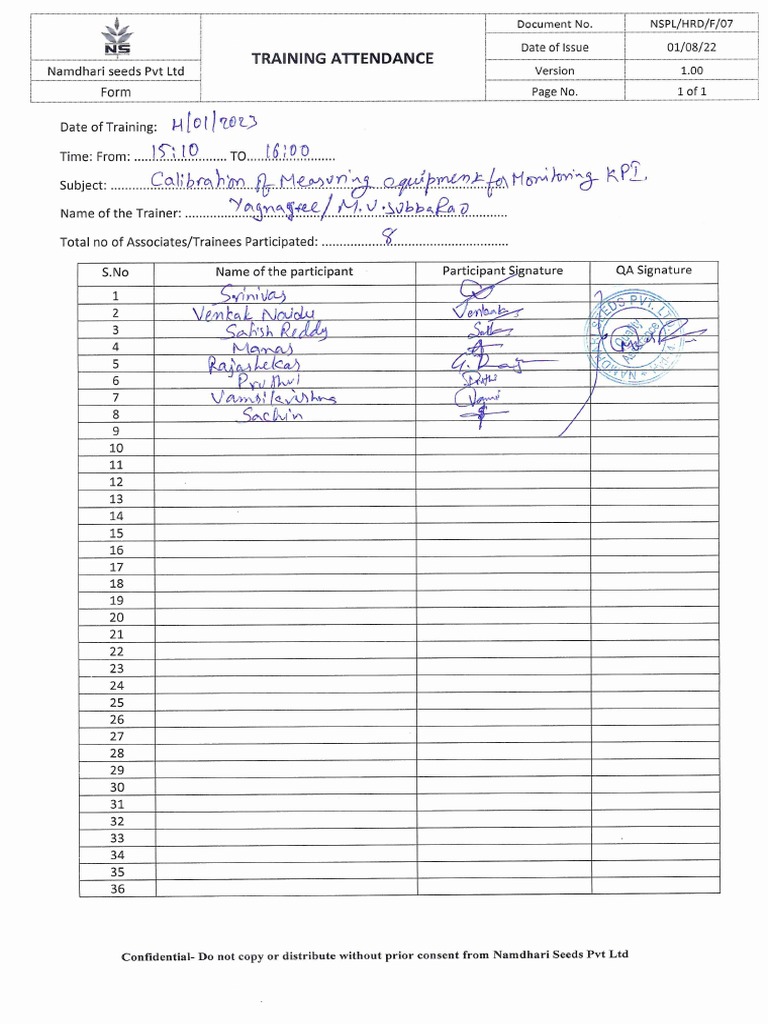 NS
Namdhari seeds Pvt Ltd
Form
TRAINING ATTENDANCE
Document No. NSPL/HRD/F/07
Date of Issue 01/08/22
Version 1.00
Page No. 1 of 1
Date of Training: 11/01/2023
Time: From: 15:10 TO 16:00
Subject: Calibration of Measuring equipment for Monitoring KPI.
Name of the Trainer: Yagnasree/ M.V.SubbaRao
Total no of Associates/Trainees Participated: 8
S.No Name of the participant Participant Signature QA Signature
1 Srinivas
2 Venkak Naidu Venkak
3 Satish Reddy
4 Manas
5 Rajashekar
6 Pruthvi
7 Vamsikrishna Vamsi
8 Sachin
9
10
11
12
13
14
15
16
17
18
19
20
21
22
23
24
25
26
27
28
29
30
31
32
33
34
35
36
Confidential- Do not copy or distribute without prior consent from Namdhari Seeds Pvt Ltd